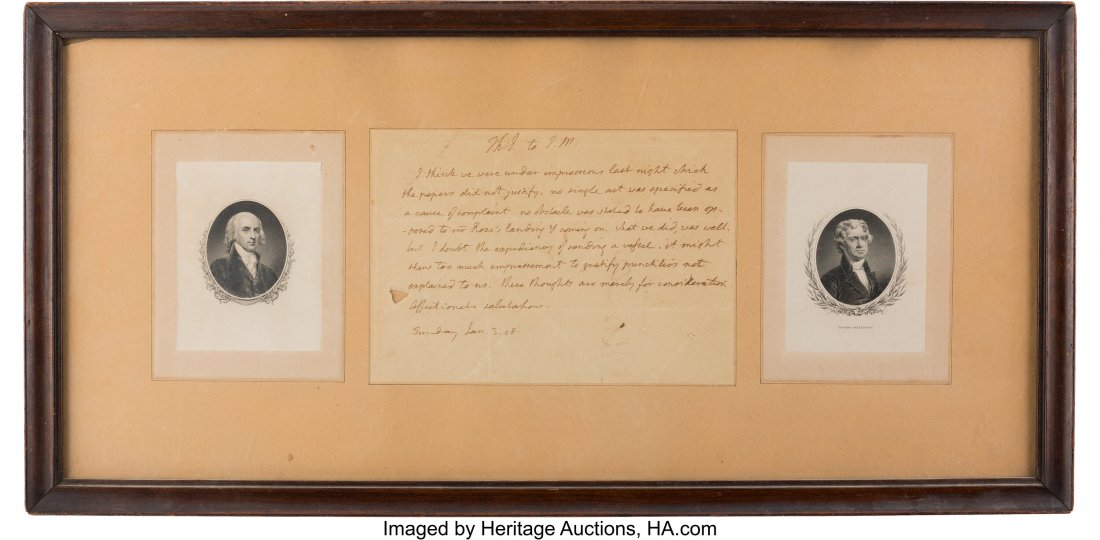 Th.J. to J.M.
I think we were under impressions last night which
the papers did not justify. no single act was specified as
a cause of complaint. no obstacle was stated to have been op-
-posed to mr Rose's landing & coming on. what we did, was well.
but I doubt the expediency of sending a vessel. it might
shew too much empressement to gratify punctilios not
explained to us. these thoughts are merely for consideration
Affectionate salutations.
Sunday Jan. 3. 08.
THOMAS JEFFERSON
Imaged by Heritage Auctions, HA.com